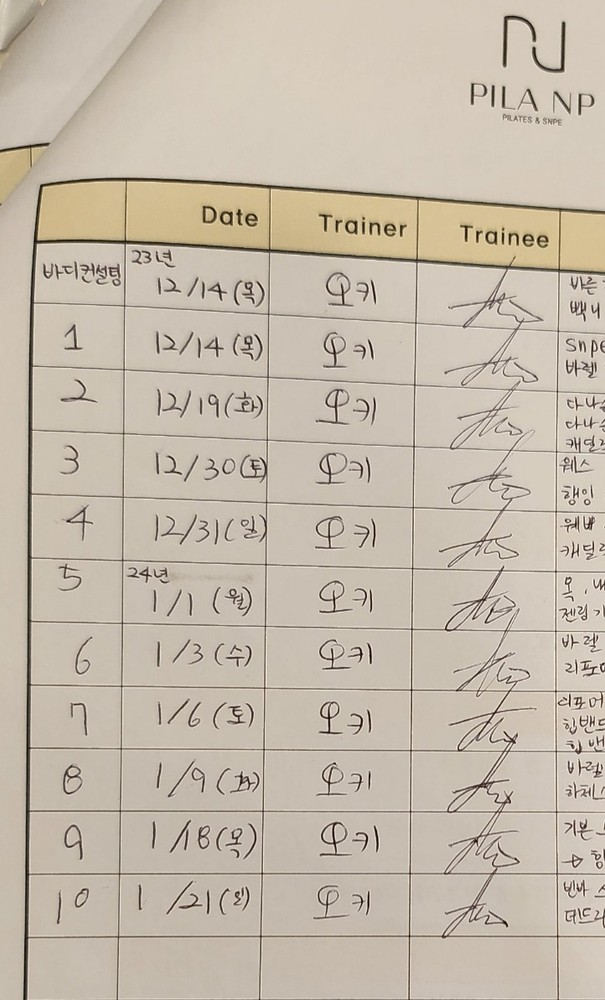 PILA NP
PILATES & SNPE
Date Trainer Trainee
바디컨설팅 23년 12/14(목) 오키 바른
백니
1 12/14(목) 오키 Snpe
바렐
2 12/19(화) 오키 다나슨
다나슨
캐딜락
3 12/30(토) 오키 웨스
행잉
4 12/31(일) 오키 웨빠
캐딜락
5 24년 1/1(월) 오키 목, 내
젠링 가
6 1/3(수) 오키 바렐
리포머
7 1/6(토) 오키 리포머
힙밴드
힙밴
8 1/9(화) 오키 바렐
하체스
9 1/18(목) 오키 기본
→ 힙
10 1/21(일) 오키 빈바 스
데드리